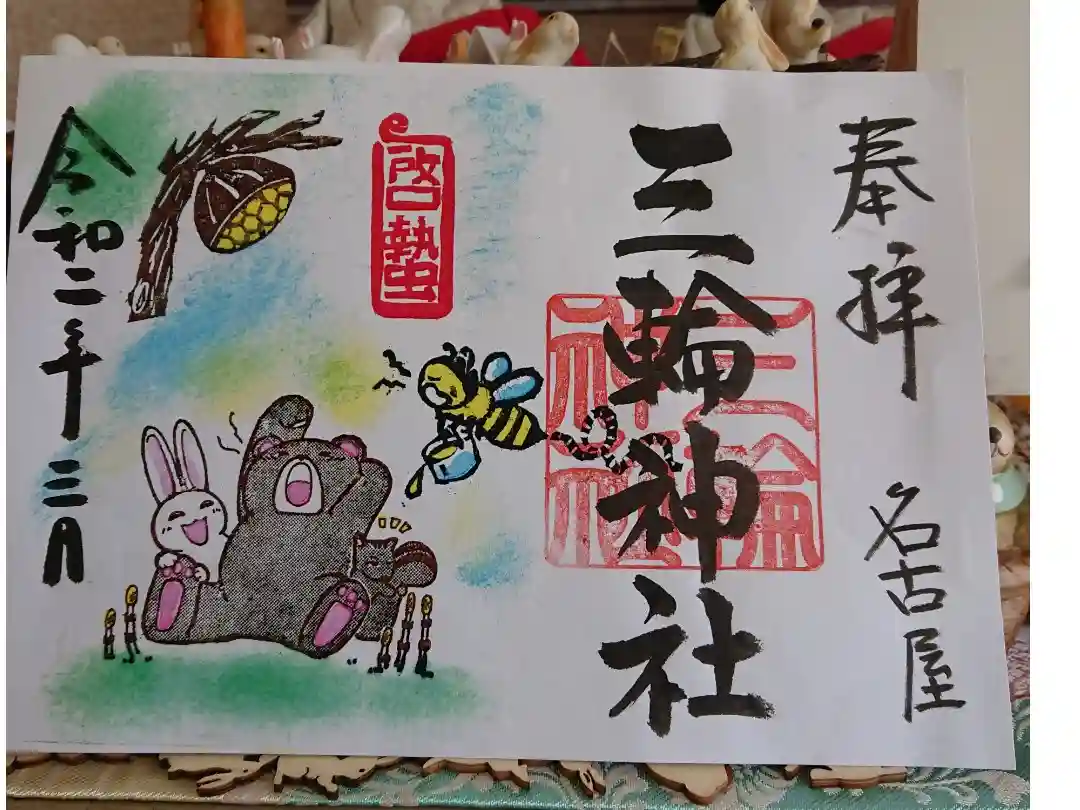 奉拝 名古屋
三輪神社
三輪神社
啓蟄
令和二年三月